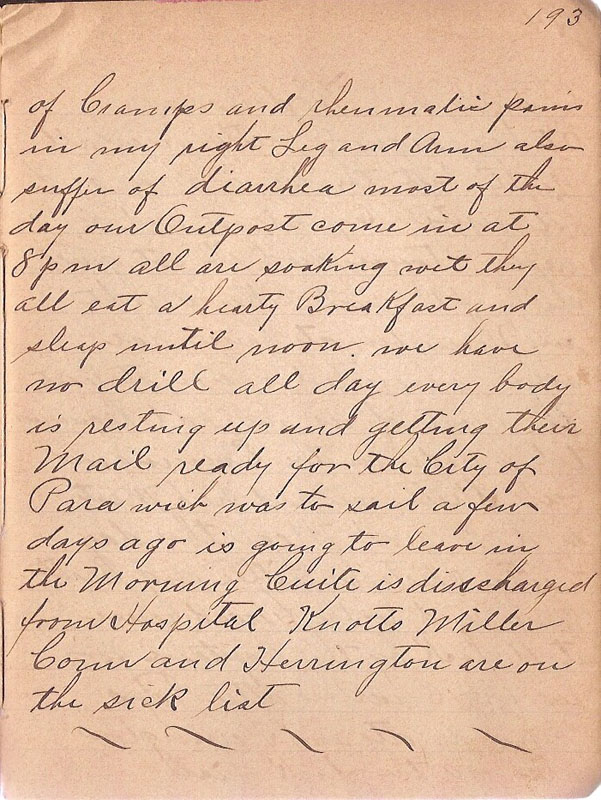 193
of Cramps and rheumatic pains
in my right Leg and Arm also
suffer of diarrhea most of the
day our Outpost come in at
8 pm all are soaking wet they
all eat a hearty Breakfast and
sleap until noon. we have
no drill all day every body
is resting up and getting their
Mail ready for the City of
Para wich was to sail a few
days ago is going to leave in
the Morning is disscharged
from Hospital Knotts Miller
Conn and Herrington are on
the sick list